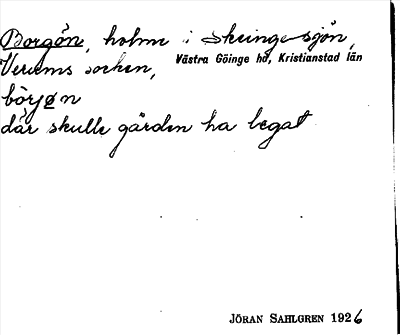 Borgön, holme i Skeingesjön,
Verums socken, Västra Göinge hd, Kristianstad län
börjøn
där skulle gården ha legat
JÖRAN SAHLGREN 1926